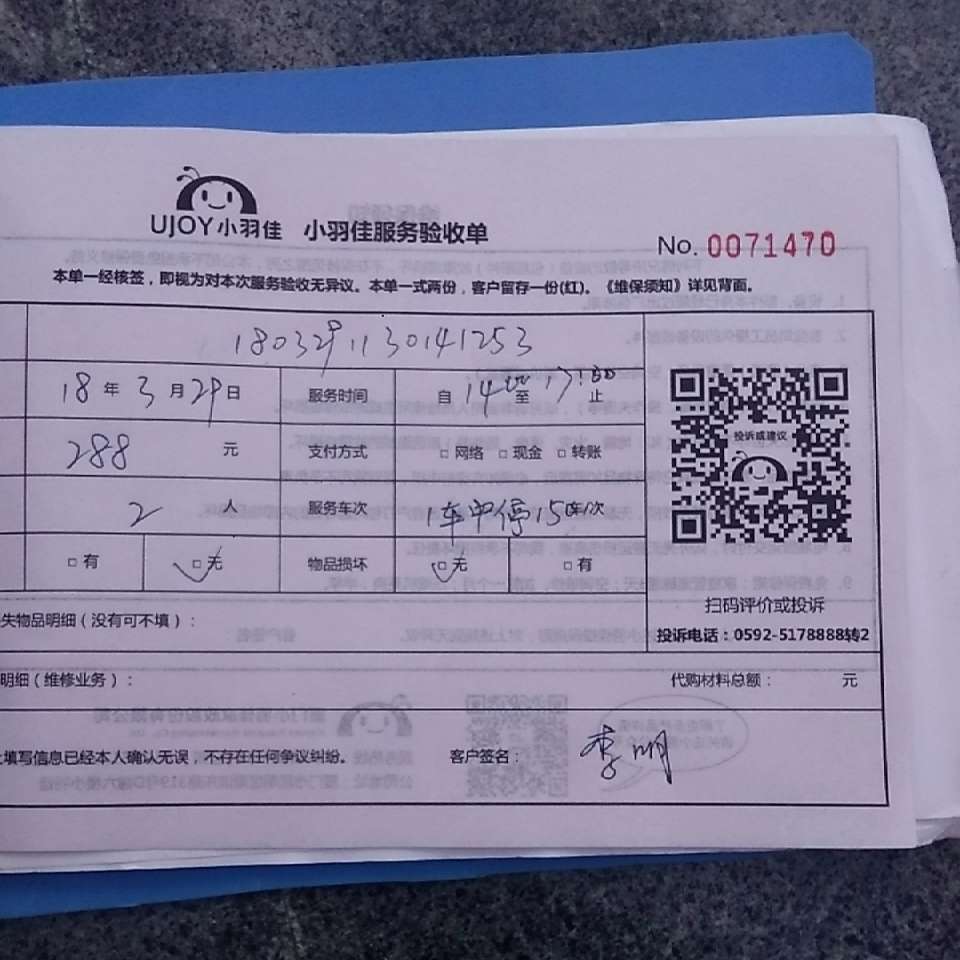 UJOY小羽佳 小羽佳服务验收单
No. 0071470
本单一经核签，即视为对本次服务验收无异议。本单一式两份，客户留存一份(红)。《维保须知》详见背面。
1803291130141253
18年3月29日 服务时间 自14:00至17:00止
288元 支付方式 □网络 □现金 □转账
投诉或建议
2人 服务车次 1车中停15车/次
□有 □无 物品损坏 □无 □有
扫码评价或投诉
失物品明细（没有可不填）：
投诉电话：0592-5178888转2
明细（维修业务）： 代购材料总额： 元
填写信息已经本人确认无误，不存在任何争议纠纷。 客户签名：李明